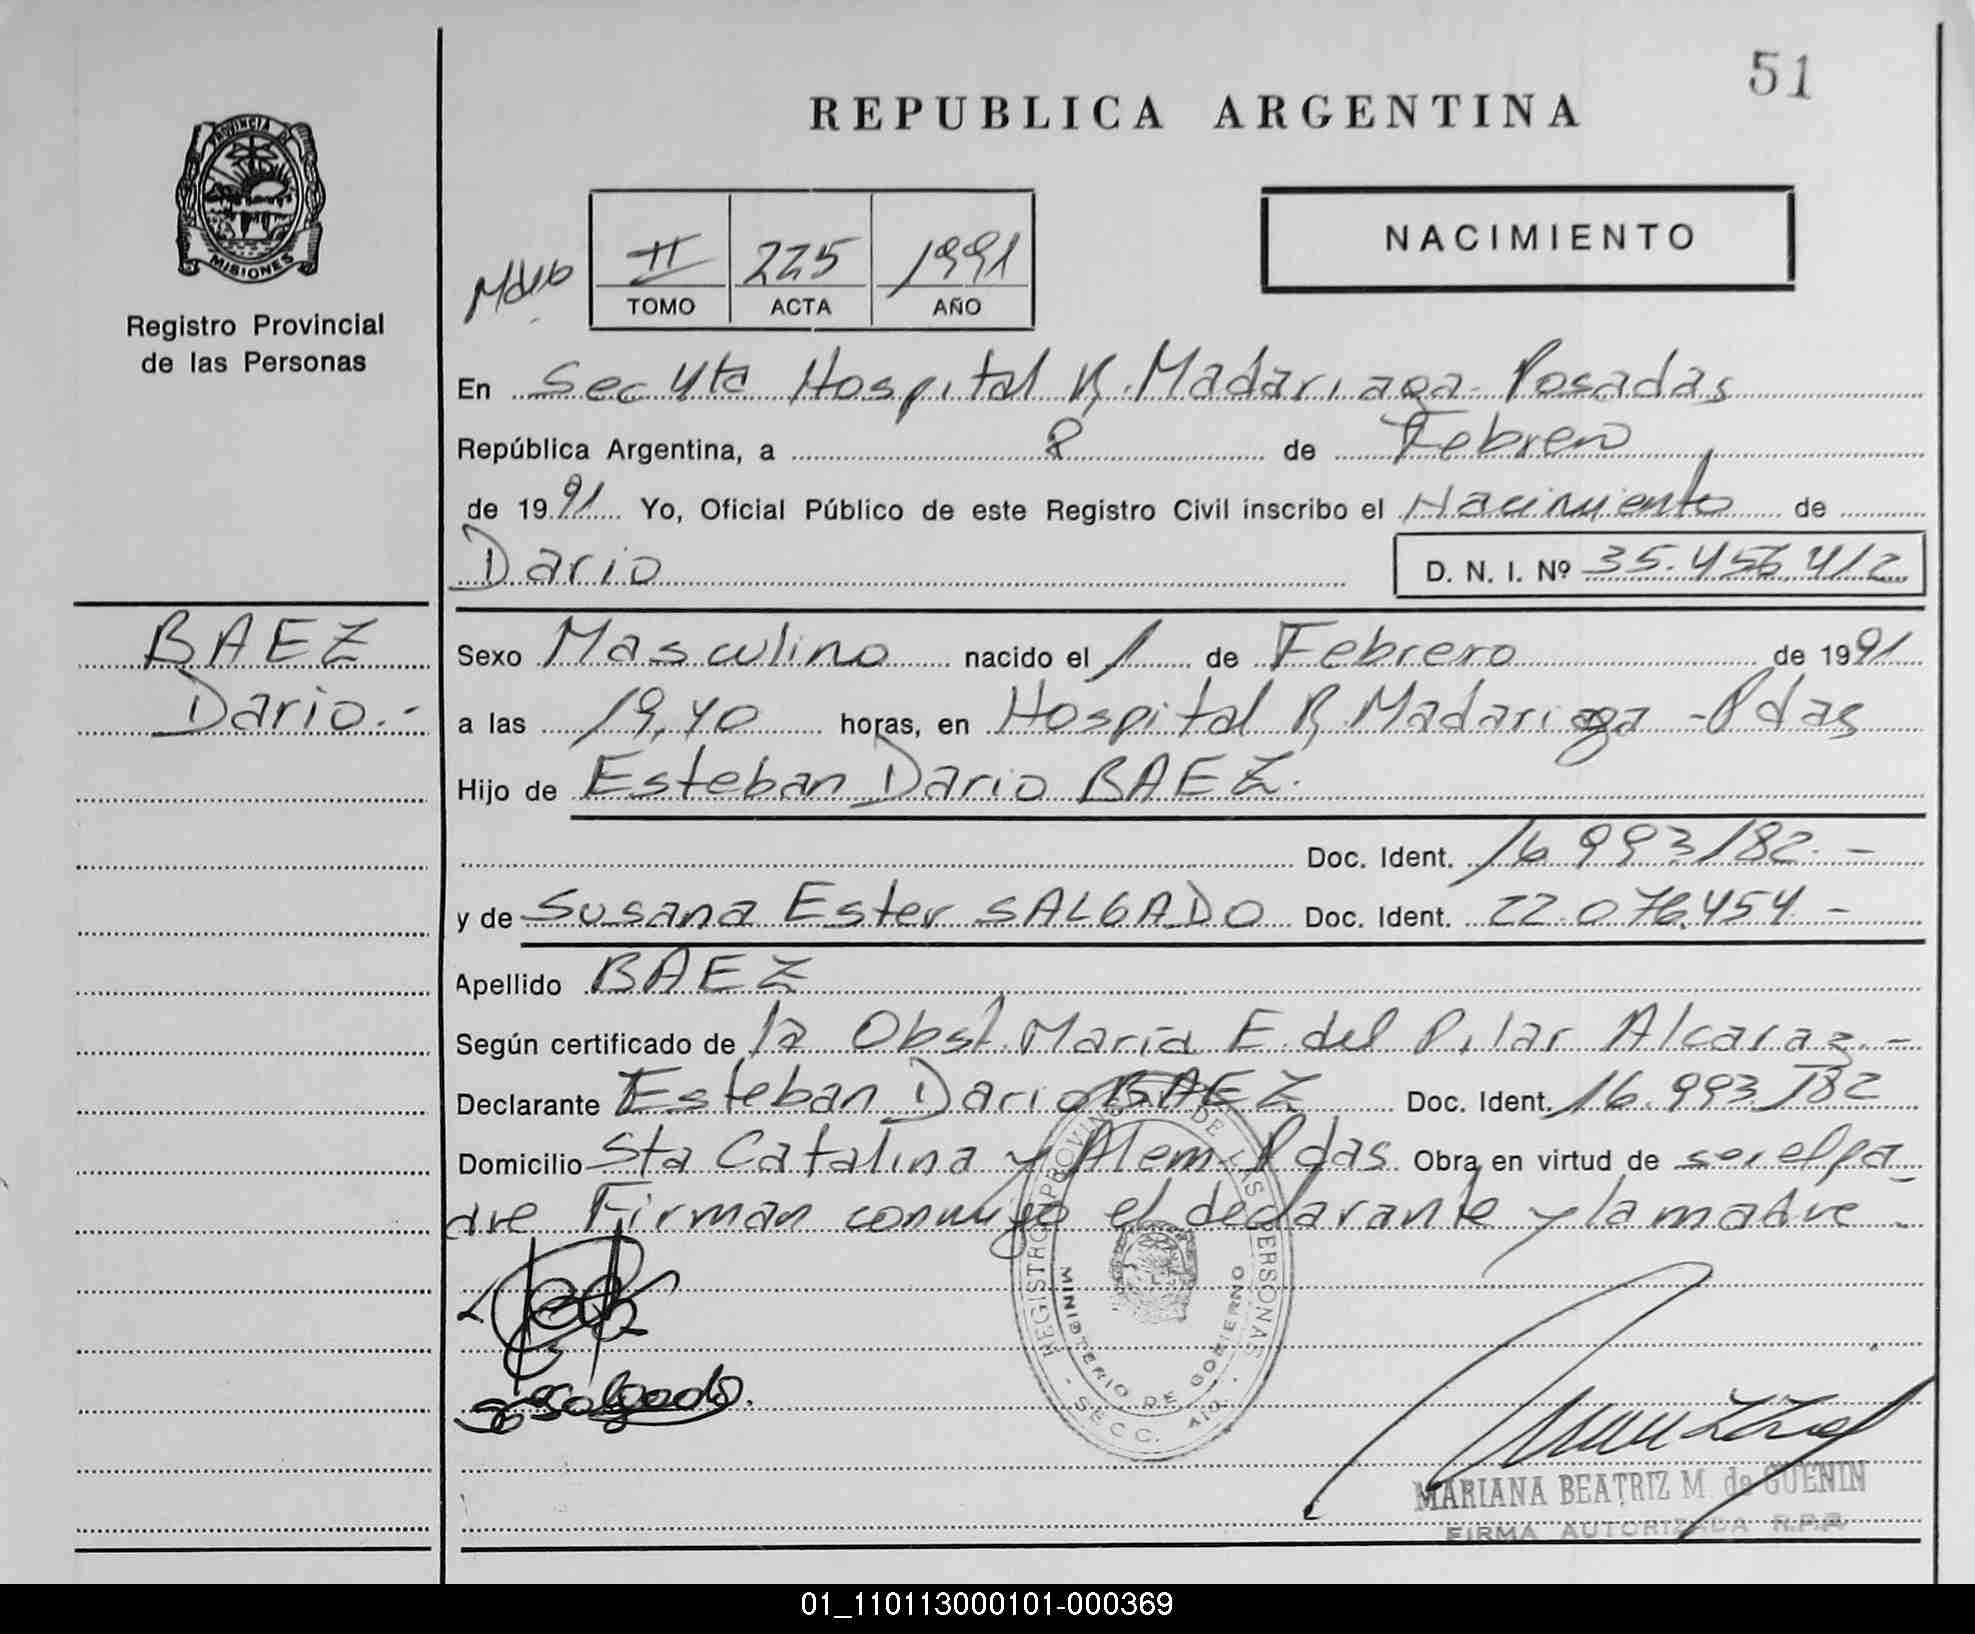 51
REPUBLICA ARGENTINA
PROVINCIA DE
MISIONES
Registro Provincial
de las Personas
II 225 1991
TOMO ACTA AÑO
NACIMIENTO
En Sec 4ta Hospital R. Madariaga - Posadas
República Argentina, a 8 de Febrero
de 1991 Yo, Oficial Público de este Registro Civil inscribo el Nacimiento de
Dario D. N. I. Nº 35.456.412
BAEZ
Dario.-
Sexo Masculino nacido el 1 de Febrero de 1991
a las 19,40 horas, en Hospital R. Madariaga - Pdas
Hijo de Esteban Dario BAEZ.
Doc. Ident. 16.993.182.-
y de Susana Ester SALGADO Doc. Ident. 22.076.454 -
Apellido BAEZ
Según certificado de la Obst. María E. del Pilar Alcaraz.-
Declarante Esteban Dario BAEZ Doc. Ident. 16.993.182
Domicilio Sta Catalina y Alem Pdas. Obra en virtud de ser el pa-
dre Firman conmigo el declarante y la madre.
REGISTRO PROVINCIAL DE LAS PERSONAS
MINISTERIO DE GOBIERNO
SECC. 4ta.
Salgado.
MARIANA BEATRIZ M. de GUENIN
FIRMA AUTORIZADA R.P.P.
01_110113000101-000369